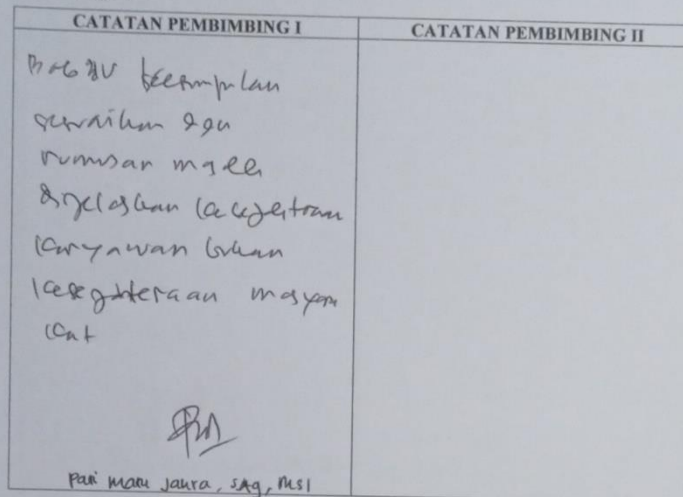 CATATAN PEMBIMBING I
CATATAN PEMBIMBING II
Bab IV kesimpulan
sesuaikan dgn
rumusan
dijelaskan kesejahteraan
karyawan bukan
kesejahteraan masyara
kat